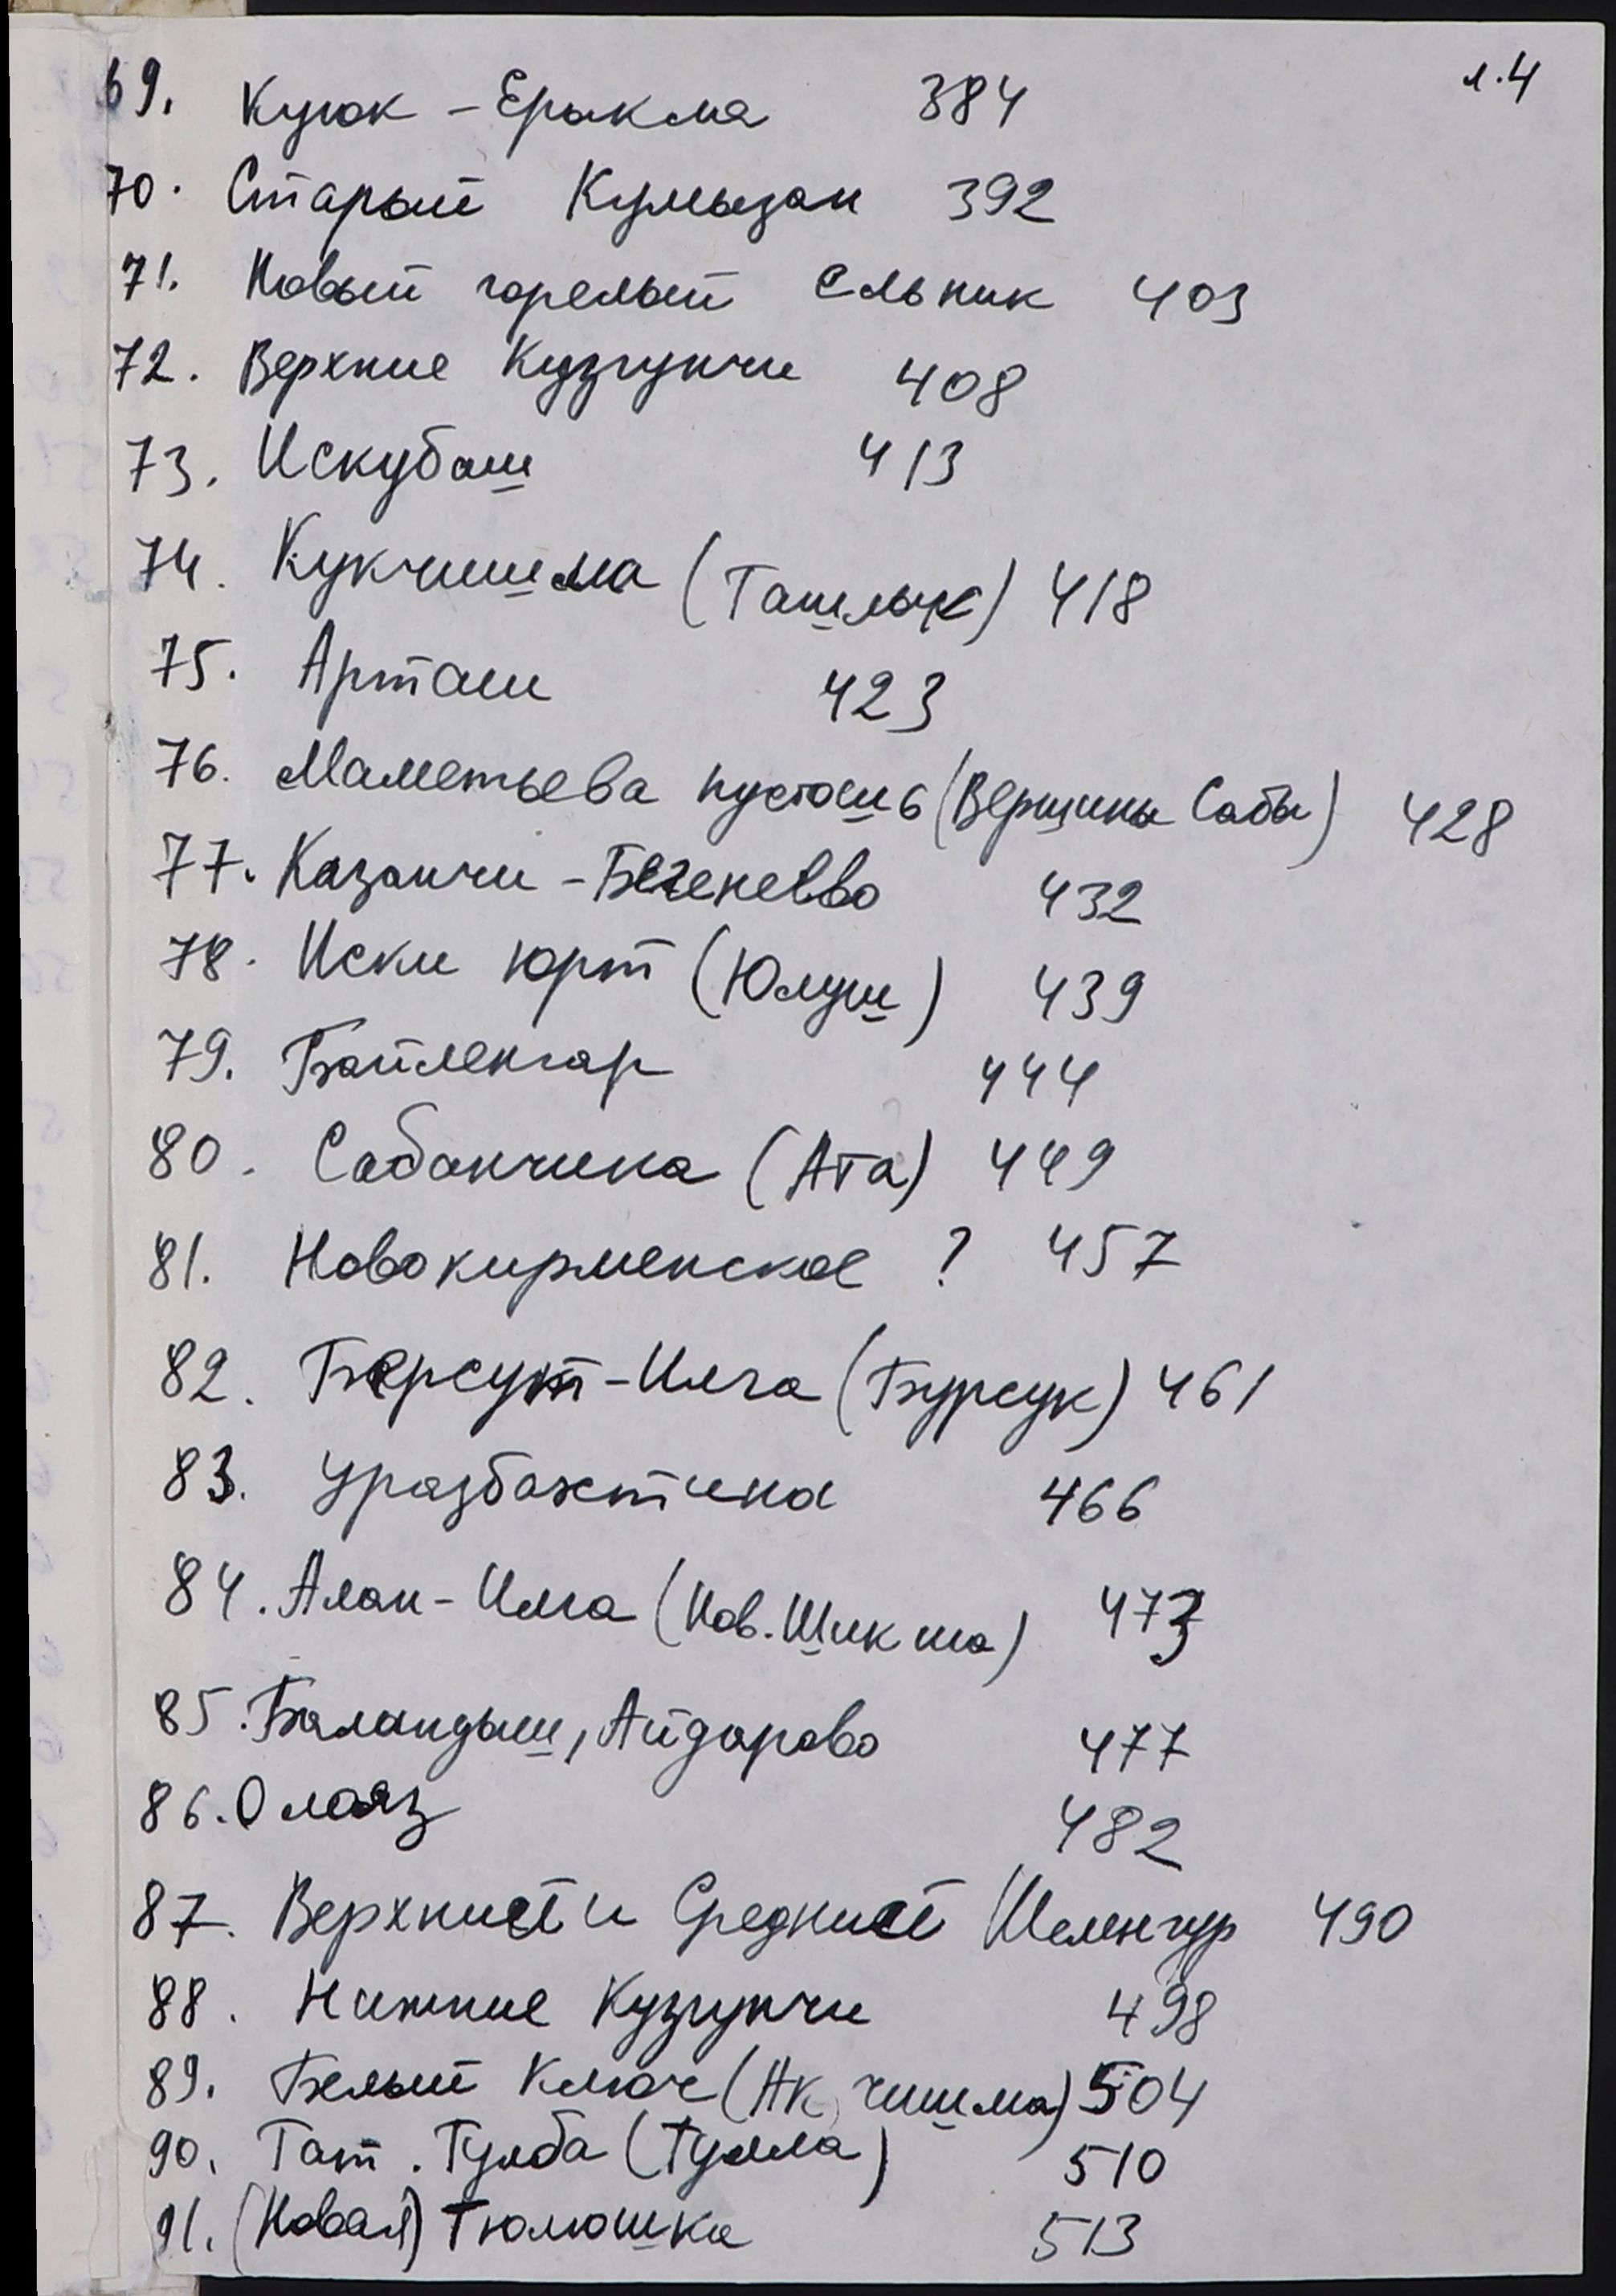 л.4
69. Куюк - Ерыкма 384
70. Старый Кумызан 392
71. Новый горелый Ельник 403
72. Верхние Кузгунчи 408
73. Искубаш 413
74. Кукчишма (Ташлык) 418
75. Арташ 423
76. Маметьева пустошь (Вершина Сабы) 428
77. Казанчи - Бегенеево 432
78. Иски юрт (Юлуш) 439
79. Байленгар 444
80. Сабанчина (Ата) 449
81. Новокирменское ? 457
82. Берсут - Илга (Бурсук) 461
83. Уразбахтина 466
84. Алан - Илга (Нов. Шикша) 473
85. Баландыш, Айдарово 477
86. Олаяз 482
87. Верхний и Средний Шеленгур 490
88. Нижние Кузгунчи 498
89. Белый Ключ (Ак чишма) 504
90. Тат. Тулба (Тулла) 510
91. (Новая) Тюлюшка 513